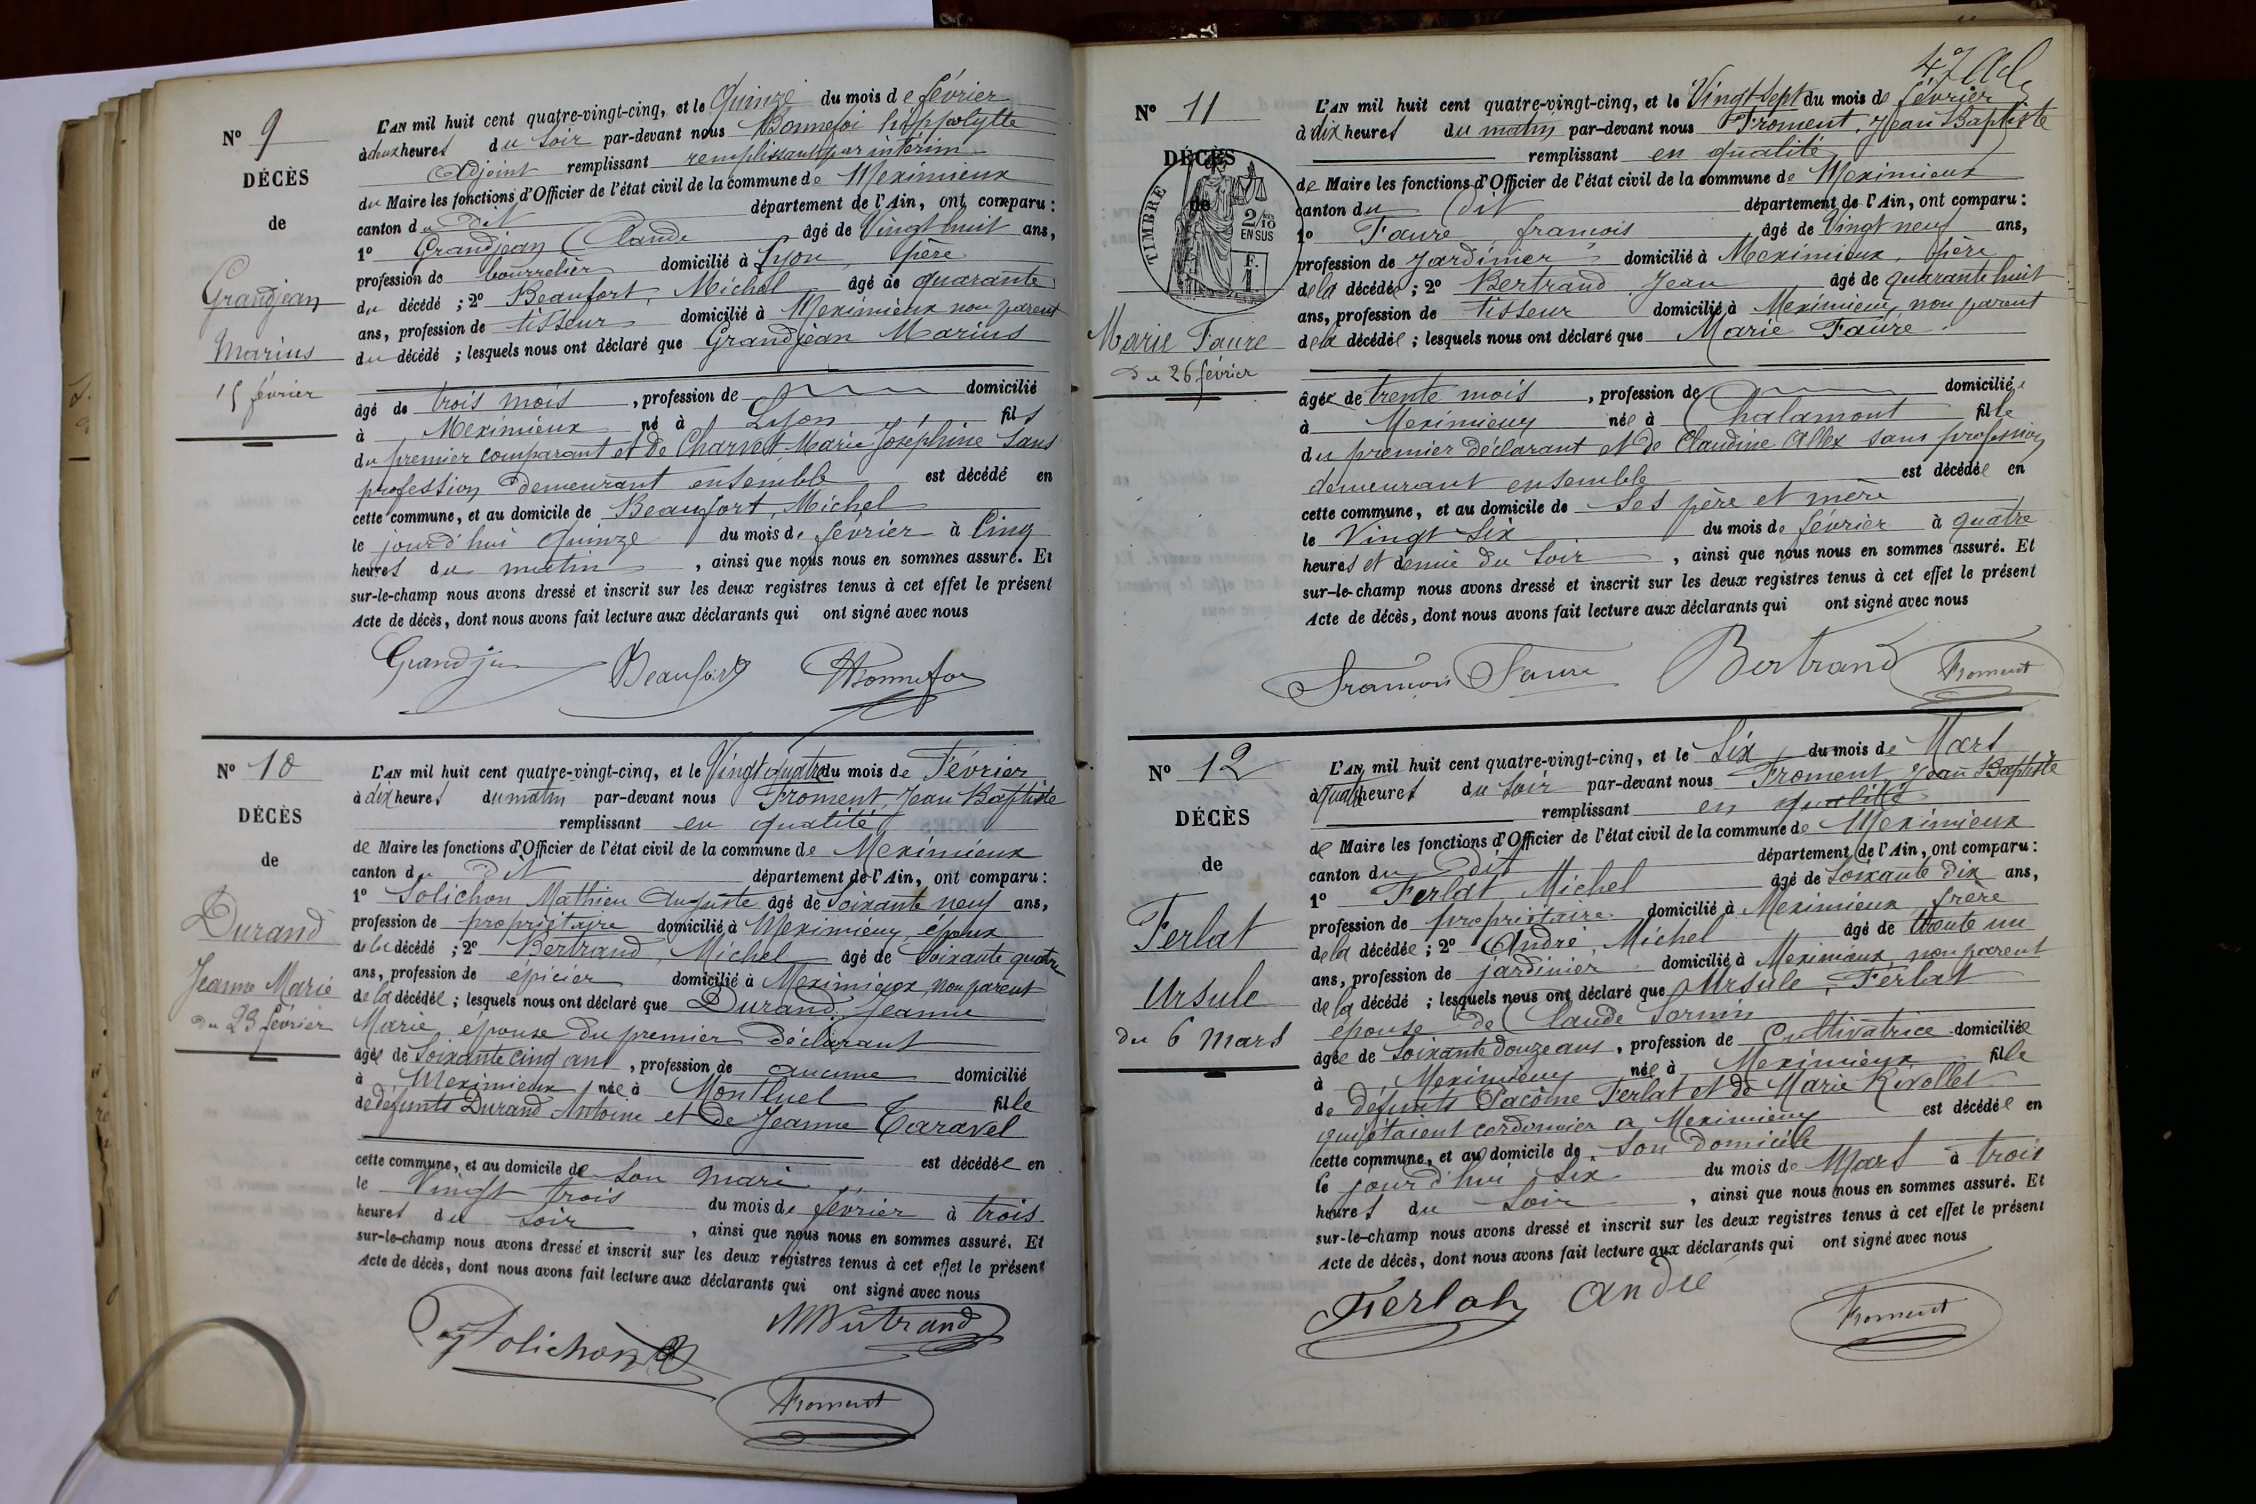 N° 9
DÉCÈS
de
Grandjean
Marius
15 février
L'AN mil huit cent quatre-vingt-cinq, et le Quinze du mois de février
à deux heures du soir par-devant nous Bonnefoi hippolytte
Adjoint remplissant remplissant par intérim
du Maire les fonctions d'Officier de l'état civil de la commune de Meximieux
canton du dit département de l'Ain, ont comparu :
1° Grandjean Claude âgé de Vingt huit ans,
profession de bourrelier domicilié à Lyon, père
du décédé ; 2° Beaufort, Michel âgé de quarante
ans, profession de tisseur domicilié à Meximieux non parent
du décédé ; lesquels nous ont déclaré que Grandjean Marius
âgé de trois mois, profession de domicilié
à Meximieux né à Lyon fils
du premier comparant et de Charvet Marie Joséphine sans
profession demeurant ensemble est décédé en
cette commune, et au domicile de Beaufort, Michel
le jourd'hui quinze du mois de février à Cinq
heures du matin, ainsi que nous nous en sommes assuré. Et
sur-le-champ nous avons dressé et inscrit sur les deux registres tenus à cet effet le présent
Acte de décès, dont nous avons fait lecture aux déclarants qui ont signé avec nous
Beaufort
N° 10
DÉCÈS
de
Durand
Jeanne Marie
du 23 février
L'AN mil huit cent quatre-vingt-cinq, et le Vingt quatre du mois de Février
à dix heures du matin par-devant nous Froment, Jean Baptiste
remplissant en qualité
de Maire les fonctions d'Officier de l'état civil de la commune de Meximieux
canton du dit département de l'Ain, ont comparu :
1° Solichon Mathieu Auguste âgé de Soixante neuf ans,
profession de propriétaire domicilié à Meximieux, époux
de la décédé ; 2° Bertrand, Michel âgé de Soixante quatre
ans, profession de épicier domicilié à Meximieux, non parent
de la décédée ; lesquels nous ont déclaré que Durand, Jeanne
Marie, épouse du premier déclarant
âgée de Soixante cinq ans, profession de aucune domicilié
à Meximieux, née à Montluel fille
de défunts Durand Antoine et de Jeanne Caravel
cette commune, et au domicile de son mari est décédée en
le Vingt trois du mois de février à trois
heures du soir, ainsi que nous nous en sommes assuré. Et
sur-le-champ nous avons dressé et inscrit sur les deux registres tenus à cet effet le présent
Acte de décès, dont nous avons fait lecture aux déclarants qui ont signé avec nous
Solichon
Bertrand
Froment
47
N° 11
DÉCÈS
de
TIMBRE
2/10
EN SUS
Marie Faure
du 26 février
L'AN mil huit cent quatre-vingt-cinq, et le Vingt sept du mois de février
à dix heures du matin par-devant nous Froment, Jean Baptiste
remplissant en qualité
de Maire les fonctions d'Officier de l'état civil de la commune de Meximieux
canton du dit département de l'Ain, ont comparu :
1° Faure francois âgé de Vingt neuf ans,
profession de Jardinier domicilié à Meximieux, père
de la décédée ; 2° Bertrand Jean âgé de quarante huit
ans, profession de tisseur domicilié à Meximieux, non parent
de la décédée ; lesquels nous ont déclaré que Marie Faure
âgée de trente mois, profession de domiciliée
à Meximieux née à Chalamont fille
du premier déclarant et de Claudine Allex sans profession
demeurant ensemble est décédée en
cette commune, et au domicile de ses père et mère
le Vingt six du mois de février à quatre
heures et demie du soir, ainsi que nous nous en sommes assuré. Et
sur-le-champ nous avons dressé et inscrit sur les deux registres tenus à cet effet le présent
Acte de décès, dont nous avons fait lecture aux déclarants qui ont signé avec nous
Francois Faure Bertrand Froment
N° 12
DÉCÈS
de
Ferlat
Ursule
du 6 Mars
L'AN mil huit cent quatre-vingt-cinq, et le Six du mois de Mars
à quatre heures du soir par-devant nous Froment, Jean Baptiste
remplissant en qualité
de Maire les fonctions d'Officier de l'état civil de la commune de Meximieux
canton du dit département de l'Ain, ont comparu :
1° Ferlat Michel âgé de soixante dix ans,
profession de propriétaire domicilié à Meximieux, frère
de la décédée ; 2° André, Michel âgé de trente un
ans, profession de jardinier domicilié à Meximieux, non parent
de la décédé ; lesquels nous ont déclaré que Ursule, Ferlat
épouse de Claude Sornin
âgée de soixante douze ans, profession de Cultivatrice domiciliée
à Meximieux née à Meximieux fille
de défunts Pacôme Ferlat et de Marie Rivollet
qui étaient cordonnier a Meximieux est décédée en
cette commune, et au domicile de son domicile
le jourd'hui six du mois de Mars à trois
heures du soir, ainsi que nous nous en sommes assuré. Et
sur-le-champ nous avons dressé et inscrit sur les deux registres tenus à cet effet le présent
Acte de décès, dont nous avons fait lecture aux déclarants qui ont signé avec nous
Ferlat André
Froment